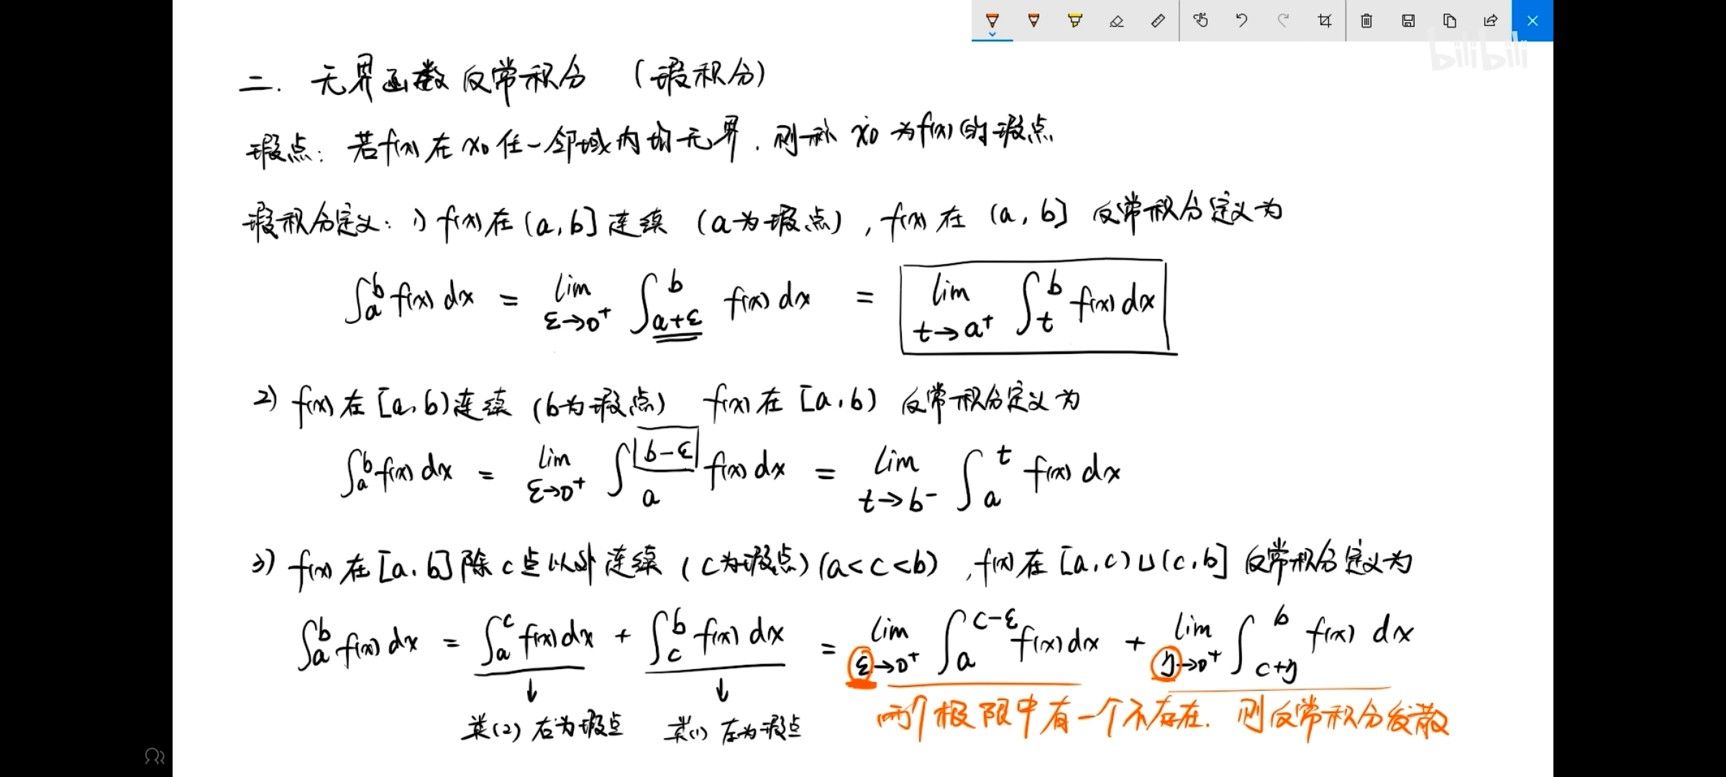 bilibili
二. 无界函数反常积分 (瑕积分)
瑕点: 若f(x)在x₀任一邻域内均无界, 则称x₀为f(x)的瑕点
瑕积分定义: 1) f(x)在(a,b]连续 (a为瑕点), f(x)在 (a, b] 反常积分定义为
∫_a^b f(x) dx = lim_{ε→0⁺} ∫_{a+ε}^b f(x) dx = lim_{t→a⁺} ∫_t^b f(x) dx
2) f(x)在[a,b)连续 (b为瑕点) f(x)在[a,b) 反常积分定义为
∫_a^b f(x) dx = lim_{ε→0⁺} ∫_a^{b-ε} f(x) dx = lim_{t→b⁻} ∫_a^t f(x) dx
3) f(x)在[a,b]除c点以外连续 (c为瑕点)(a<c<b), f(x)在[a,c)∪(c,b] 反常积分定义为
∫_a^b f(x) dx = ∫_a^c f(x) dx + ∫_c^b f(x) dx = lim_{ε→0⁺} ∫_a^{c-ε} f(x) dx + lim_{η→0⁺} ∫_{c+η}^b f(x) dx
↓ ↓
类(2) 右为瑕点 类(1) 左为瑕点
两个极限中有一个不存在. 则反常积分发散